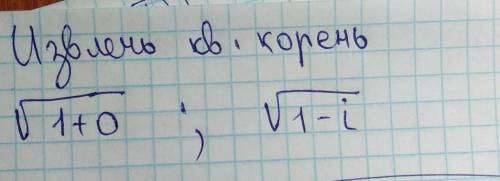 Извлечь кв. корень
√1+0 ; √1-i